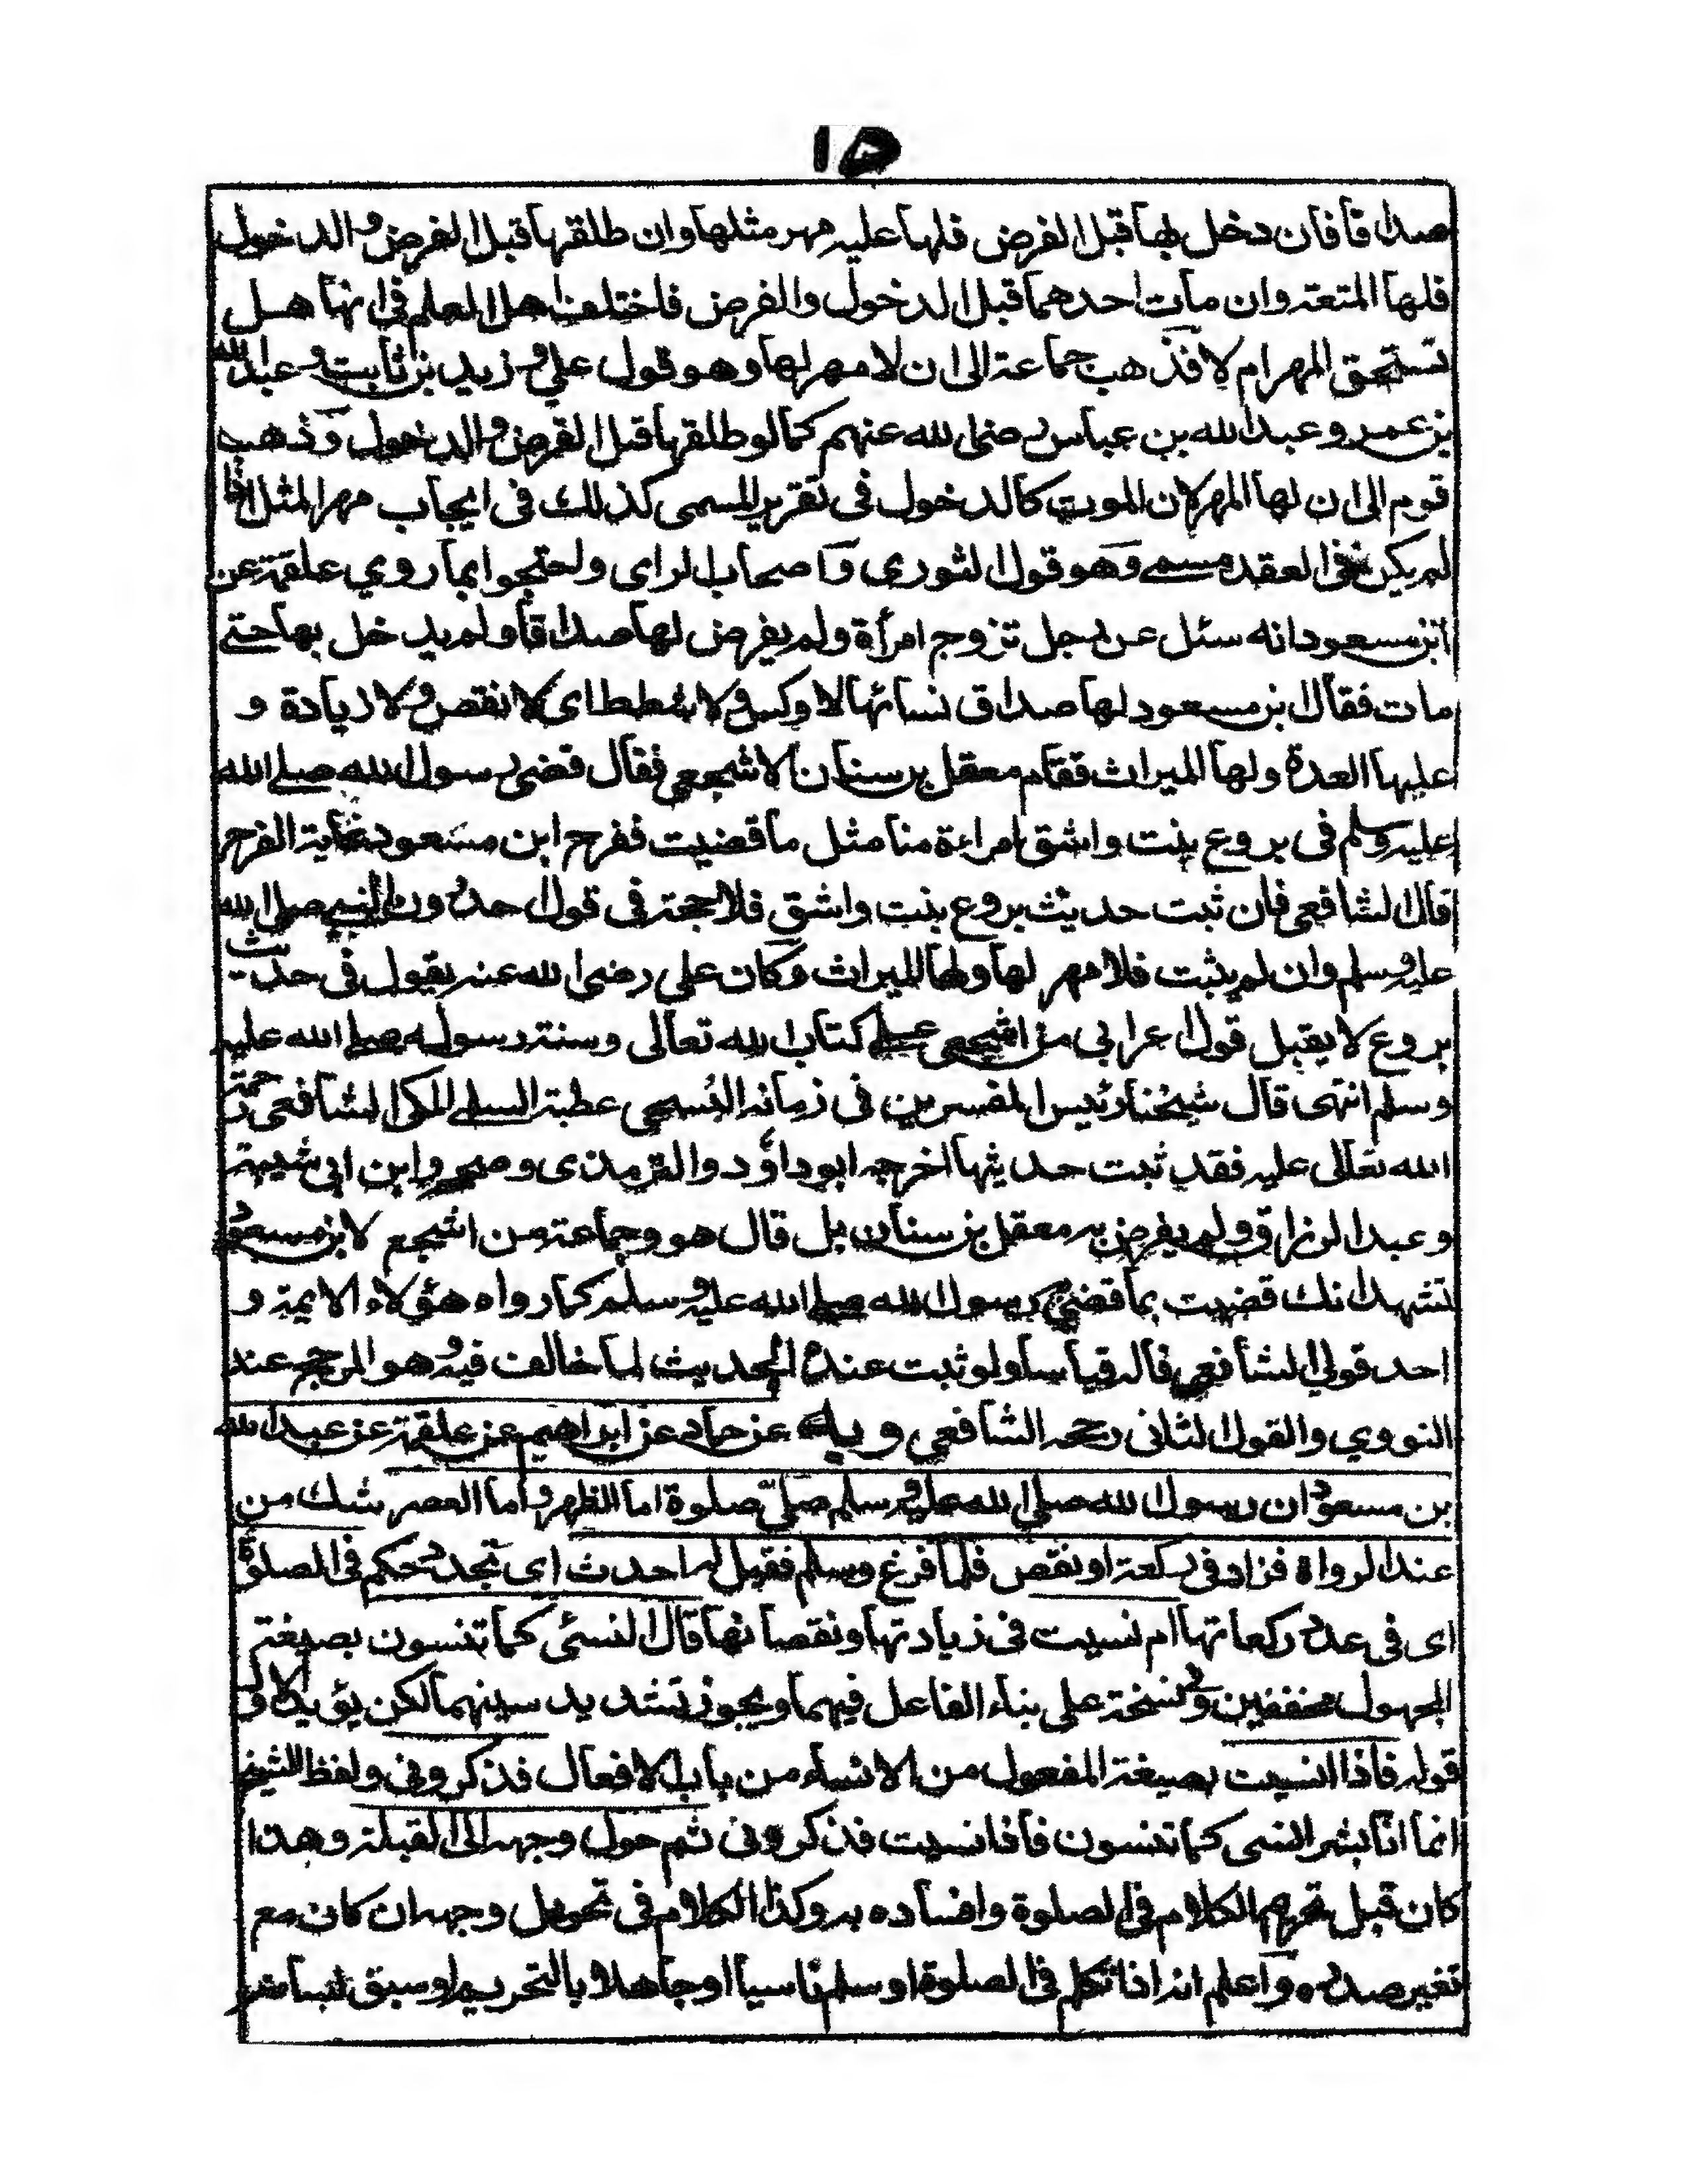 ١٥
صداقا فان دخل بها قبل الفرض فلها عليه مهر مثلها وان طلقها قبل الفرض والدخول
فلها المتعة وان مات احدهما قبل الدخول والفرض فاختلف اهل العلم في انها هل
تستحق المهر ام لا فذهب جماعة الى ان لا مهر لها وهو قول علي وزيد بن ثابت وعبد الله
بن عمر وعبد الله بن عباس رضى الله عنهم كما لو طلقها قبل الفرض والدخول وذهب
قوم الى ان لها المهر لان الموت كالدخول فى تقرير المسمى كذلك فى ايجاب مهر المثل اذا
لم يكن فى العقد مسمے وهو قول الثوري واصحاب الراى واحتجوا بما روي علقمة عن
ابن مسعود انه سئل عن رجل تزوج امرأة ولم يفرض لها صداقا ولم يدخل بها حتے
مات فقال ابن مسعود لها صداق نسائها لا وكس ولا شطط اى لا نقص ولا زيادة و
عليها العدة ولها الميراث فقام معقل بن سنان الاشجعي فقال قضى رسول الله صلے الله
عليه وسلم فى بروع بنت واشق امراءة منا مثل ما قضيت ففرح ابن مسعود غاية الفرح
قال الشافعي فان ثبت حديث بروع بنت واشق فلا حجة فى قول احد دون النبے صلے الله
عليه وسلم وان لم يثبت فلا مهر لها ولها الميراث وكان علي رضى الله عنه يقول فى حديث
بروع لا يقبل قول اعرابي من اشجعى علے كتاب الله تعالى وسنة رسوله صلے الله عليه
وسلم انتهى قال شيخنا رئيس المفسرين فى زمانه الشيخ عطية السلمے المكى الشافعي رحمة
الله تعالى عليه فقد ثبت حديثها اخرجه ابو داؤد والترمذى وصححه وابن ابي شيبة
وعبد الرزاق ولم يفرض به معقل بن سنان بل قال هو وجماعة من اشجع لابن مسعود
نشهد انك قضيت بما قضى رسول الله صلے الله عليه وسلم كما رواه هؤلاء الايمة و
احد قولي الشافعي قاله قياسا ولو ثبت عنده الحديث لما خالف فيه وهو المرجح عند
النووي والقول الثانى رجحه الشافعي وبه عن حماد عن ابراهيم عن علقمة عن عبد الله
بن مسعود ان رسول الله صلى الله عليه وسلم صلى صلوة اما الظهر واما العصر شك من
عند الرواة فزاد فى ركعة او نقص فلما فرغ وسلم فقيل له احدث اى تجدد حكم فى الصلوة
اى فى عدد ركعاتها ام نسيت فى زيادتها ونقصانها قال انسئى كما تنسون بصيغة
المجهول مخففين وفى نسخة على بناء الفاعل فيهما ويجوز تشديد سينهما لكن يؤيد الاول
قوله فاذا انسيت بصيغة المفعول من الانساء من باب الافعال فذكروني ولفظ الشيخ
انما انا بشر انسى كما تنسون فاذا نسيت فذكروني ثم حول وجهه الى القبلة وهذا
كان قبل تحريم الكلام فى الصلوة وافساده به وكذا الكلام فى تحويل وجهه ان كان مع
تغير صدره واعلم انه اذا تكلم فى الصلوة او سلم ناسيا او جاهلا بالتحريم او سبق لسانه